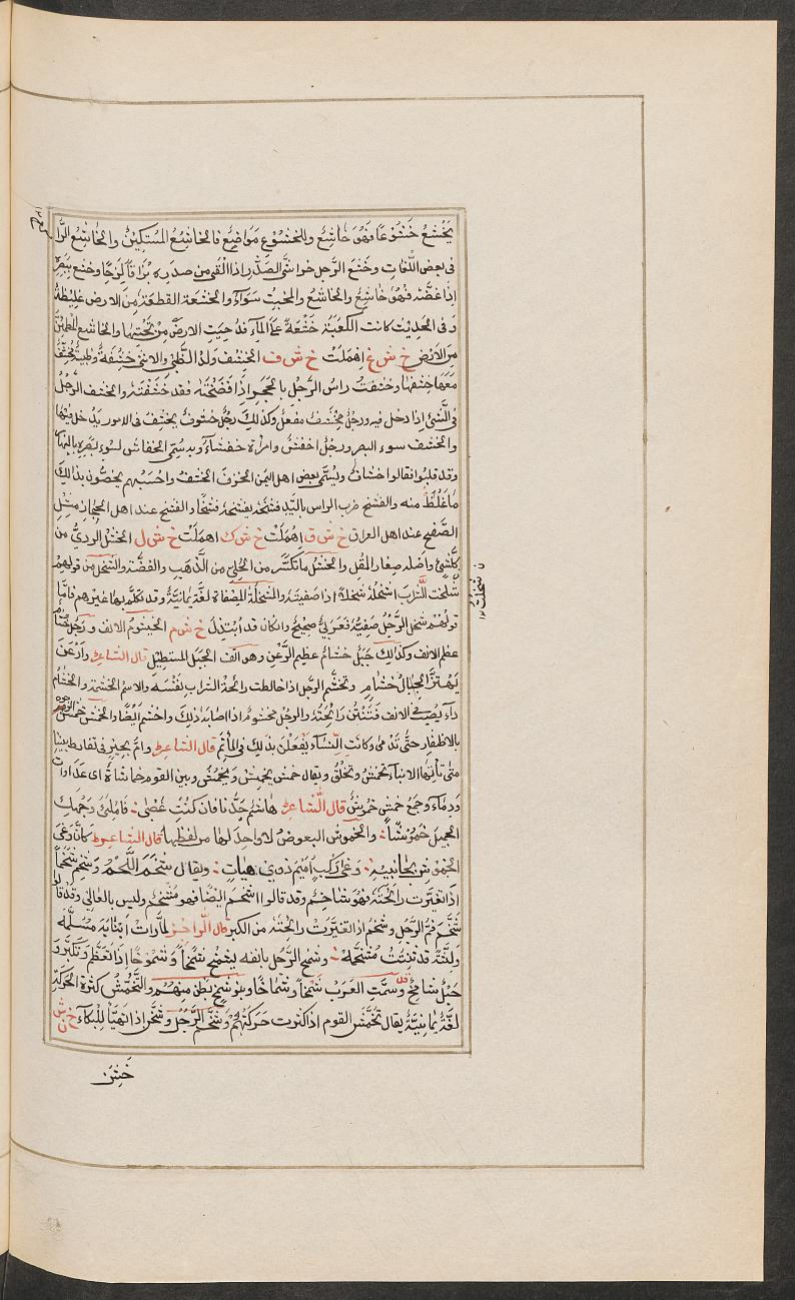 يَخشعُ خُشُوعًا فهُوَ خَاشِع والخشُوْع مَوَاضِع فالخاشِعُ المُستكِينُ والخَاشِع الرَّا
فى بعض اللّغات وخشع الرّجل خراشىَّ الصَّدر اذا القى من صدره بُزاقًا لزجًا وخشع ببَصَرِه
اذا غضَّه فهُوَ خَاشِعٌ والخَاشعُ والمخبِتُ سَوَآءٌ والخشعَة القطعَةُ مِنَ الارض غليظةٌ
وَفى الحَدِيْث كانت الكَعْبَةُ خُشْعَةً علَى المآءِ فدُحِيَت الارضُ مِن تَحْتِهَا والخاشع المطمئنُّ
مِنَ الارضِ خ ش غ اهْمِلَتْ خ ش ف الخشف ولدُ الظَّبْى والانثى خِشفةٌ وظبيةٌ مُخشِفٌ
مَعَهَا خِشفها وخشفتُ راسَ الرَّجُلِ بالحَجَرِ اذا فضختَه فقد خشَفْتَه وانخشف الرَّجُلُ
فى الشَّئِ اذا دخل فيه ورجلٌ مِخْشَفٌ مِفعَلٌ وكذلك رجُلٌ خشُوفٌ يخشِف فى الامور يَدْخل فيها
والخشف سوء البصر ورجلٌ اخفشُ وامرأة خفشآءُ وبه سُمّى الخفاش لسُوء بَصَرِه بالنّهار
وقد قلبُوا فقالوا خشاف ويُسَمّى بعض اهل اليمن الخزفَ الخشف واحسَبُهم يخصُّون بذالك
مَا غَلُظَ منه والفشخ ضرب الراس باليَدِ فشخَه يفشَخه فشخًا والفشخ عند اهل الحِجَاز مِثْلِ
الصَّفع عند اهل العراق خ ش ق اهْمِلَتْ خ ش ك اهملَتْ خ ش ل الخشل الردىُّ من
كُلِّ شئٍ واصله صِغار المُقل والخشلُ ما تكسَّر من الحُلِىّ من الذَّهَبِ والفِضَّة والشخل من قولهِمْ
شخلت الشَّرابَ اشخلُهُ شخلاً اذا صفّيتَه والمِشخلةُ المِصْفاة لغةٌ يمانيّةٌ وقد تكلّم بها غيرهم فامّا
قولهُمْ شخل الرَّجُلُ صَفِيُّه فعَرَبِىٌّ صحيحٌ وان كان قد ابْتُذِلَ خ ش م الخيشومُ الانف ورَجُلٌ خُشَامٌ
عظيم الانف وكذالك جَبَلٌ خشامٌ عظيم الرَّعْنِ وهو انف الجبَل المستطِيْل قال الشاعرُ وَارْعَن
يَهتزُّ الجِبَالُ خُشامِ وتخشَّم الرَّجل اذا خالطت رائحةُ الشرابِ نفسَه والاسم الخشمة والخشام
دآء يُصِيبُ الانف فتنتنُ رَائِحَتُه والرجُل مخشومٌ اذا اصابه ذلِكَ واخشم ايْضًا والخمش خمش الوَجْه
بالاظفار حتّى تَدْمى وكانت النّسآء يَفْعَلْنَ بذلِكَ فى المأتَم قال الشاعر وامُّ بحيرٍ فى تفارط بيننا
متى تأتِها الانبآء تخمشُ وَتحْلُقُ ويقال خمش يخمِشُ ويَخمُشُ وبين القوم خماشاةٌ اى عَدَاوات
وَدِمَآء وجَمع خمشٍ خُمُوشٌ قَال الشّاعرُ هَاشِم جَدُّنا فان كنتِ غَضْبى ؛ فَامْلَئى وَجْهَكِ
الجمِيل خُمُوشًا ؛ والخَموش البعوض لا واحِدَ لهَا من لفظِهَا قال الشاعر كَانَّ وَغَى
الخَمُوش بِجَانبيهِ ؛ وَغى رَكْبٍ اُمَيْم ذوى هِيَاتِ ؛ ويُقال شخَم اللّحْم وَشَخِم شَخَمًا
اذا تغيَّرت رائحَتُه فهُوَ شاخمٌ وقد قالوا اشخم ايْضًا فهو مُشخم وليس بالعالى وقد قالُوا
شَخَم فَمُ الرَّجُل وشَخُم اذا تغيّرَتْ رائِحَتُه من الكبر قال الرّاجزُ لمّا رأت انيَابَه مُثَلَّمه
وَلِثَّةً قد ثَتِنَتْ مُشخّمَهْ ؛ وشمخ الرَّجُل بانفه يشمَخ شمخًا وَشمُوخًا اذا تعَظّم وَتكبَّر وَ
جَبَلٌ شامخٌ وقد سمَّتِ العَرَب شمخًا وشمّاخًا وبنو شمخ بطن منهُم والتَّخمُّش كثرة الحَرَكَة
لغةٌ يمانيّةٌ يقال تخمّش القوم اذا كثرت حَرَكتُهُمْ وشخّم الرَّجُل وشخّن اذا تهيّأ للبُكآء خ ش ن
خشن
شخلت